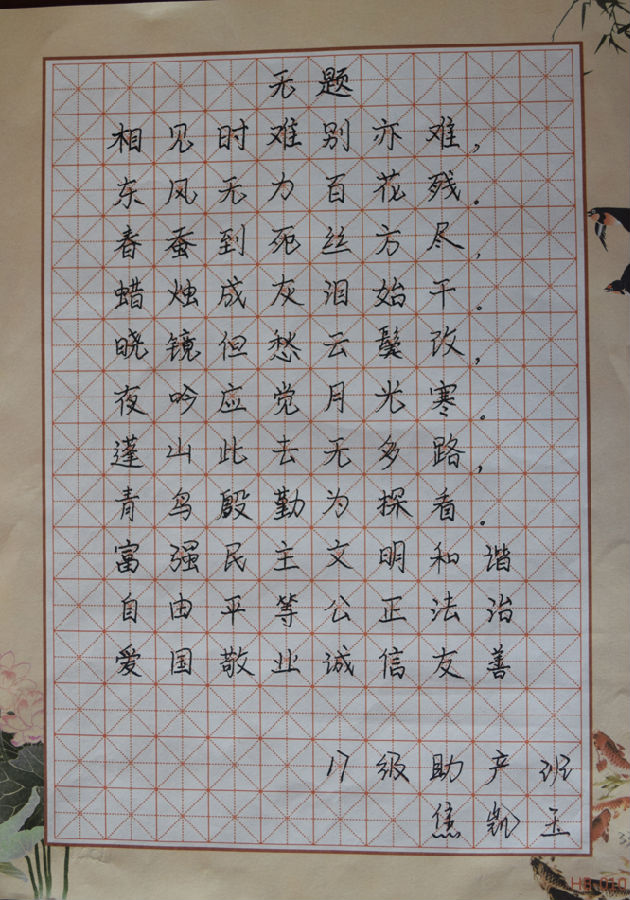 无题
相见时难别亦难，
东风无力百花残。
春蚕到死丝方尽，
蜡烛成灰泪始干。
晓镜但愁云鬓改，
夜吟应觉月光寒。
蓬山此去无多路，
青鸟殷勤为探看。
富强民主文明和谐
自由平等公正法治
爱国敬业诚信友善
17级助产班
焦凯玉